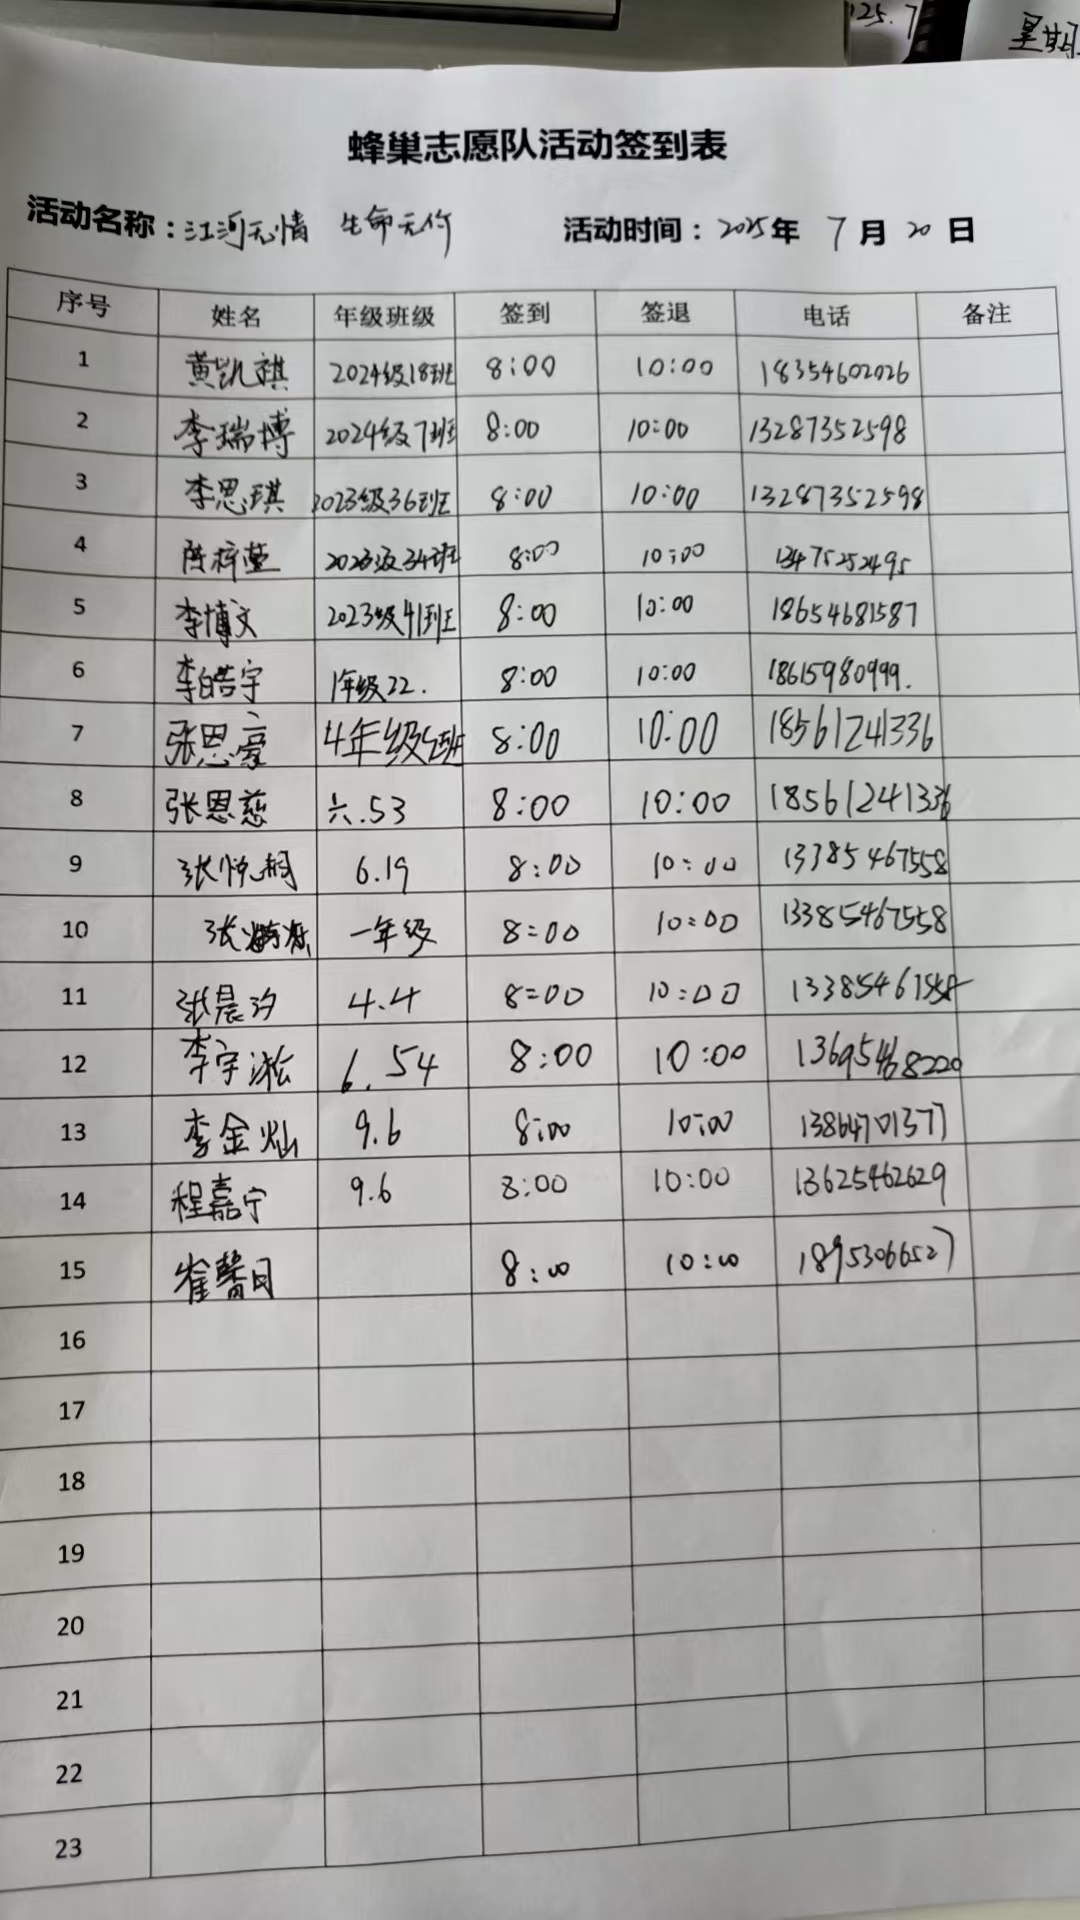 125.7
星期
蜂巢志愿队活动签到表
活动名称：江河无情 生命无价 活动时间：2025年 7月 20日
序号 姓名 年级班级 签到 签退 电话 备注
1 黄凯祺 2024级18班 8:00 10:00 18354602026
2 李瑞博 2024级7班 8:00 10:00 13287352598
3 李思琪 2023级36班 8:00 10:00 13287352598
4 陈梓萱 2023级34班 8:00 10:00 13475252495
5 李博文 2023级41班 8:00 10:00 18654681587
6 李皓宇 1年级22. 8:00 10:00 18615980999.
7 张恩豪 4年级5班 8:00 10:00 18561241336
8 张恩慈 六.53 8:00 10:00 18561241336
9 张悦桐 6.19 8:00 10:00 13385467558
10 张 一年级 8:00 10:00 13385467558
11 张晨汐 4.4 8:00 10:00 13385467558
12 李宇淞 6.54 8:00 10:00 13695468220
13 李金灿 9.6 8:00 10:00 13864701377
14 程嘉宁 9.6 8:00 10:00 13625462629
15 崔馨月 8:00 10:00 18953066527
16
17
18
19
20
21
22
23